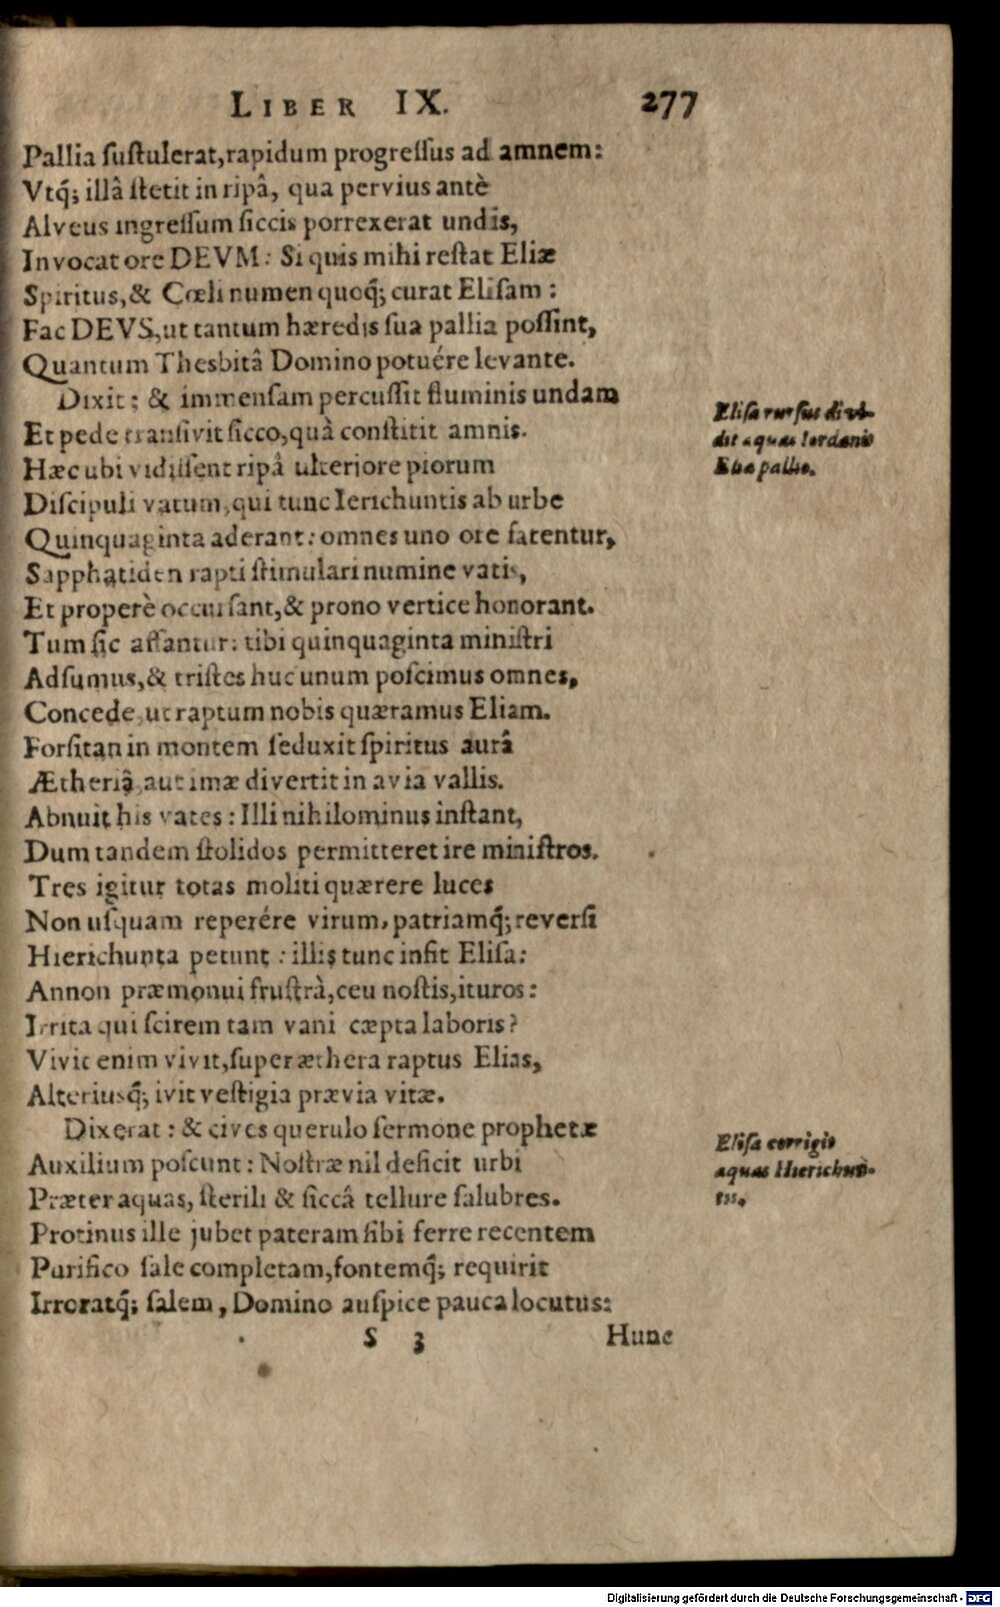 LIBER IX. 277
Pallia ſuſtulerat, rapidum progreſſus ad amnem:
Vtq́; illâ ſtetit in ripâ, qua pervius antè
Alveus ingreſſum ſiccis porrexerat undis,
Invocat ore DEVM: Si quis mihi reſtat Eliæ
Spiritus, & Cœli numen quoq́; curat Eliſam:
Fac DEVS, ut tantum hæredis ſua pallia poſſint,
Quantum Thesbitâ Domino potuére levante.
Dixit; & immenſam percuſſit fluminis undam
Et pede tranſivit ſicco, quà conſtitit amnis.
Eliſa rurſus divi-
dit aquas Iordanis
Eliæ pallio.
Hæc ubi vidiſſent ripâ ulteriore piorum
Diſcipuli vatum, qui tunc Ierichuntis ab urbe
Quinquaginta aderant: omnes uno ore fatentur,
Sapphatiden rapti ſtimulari numine vatis,
Et properè occurſant, & prono vertice honorant.
Tum ſic affantur: tibi quinquaginta miniſtri
Adſumus, & triſtes huc unum poſcimus omnes,
Concede, ut raptum nobis quæramus Eliam.
Forſitan in montem ſeduxit ſpiritus aurâ
Ætheriâ, aut imæ divertit in avia vallis.
Abnuit his vates: Illi nihilominus inſtant,
Dum tandem ſtolidos permitteret ire miniſtros.
Tres igitur totas moliti quærere luces
Non uſquam reperére virum, patriamq́; reverſi
Hierichunta petunt: illis tunc infit Eliſa:
Annon præmonui fruſtrà, ceu noſtis, ituros:
Irrita qui ſcirem tam vani cæpta laboris?
Vivit enim vivit, ſuper æthera raptus Elias,
Alteriusq́; ivit veſtigia prævia vitæ.
Dixerat: & cives querulo ſermone prophetæ
Auxilium poſcunt: Noſtræ nil deficit urbi
Præter aquas, ſterili & ſiccâ tellure ſalubres.
Eliſa corrigit
aquas Hierichun-
tis.
Protinus ille jubet pateram ſibi ferre recentem
Purifico ſale completam, fontemq́; requirit
Irroratq́; ſalem, Domino auſpice pauca locutus:
S 3 Hunc
Digitalisierung gefördert durch die Deutsche Forschungsgemeinschaft - DFG